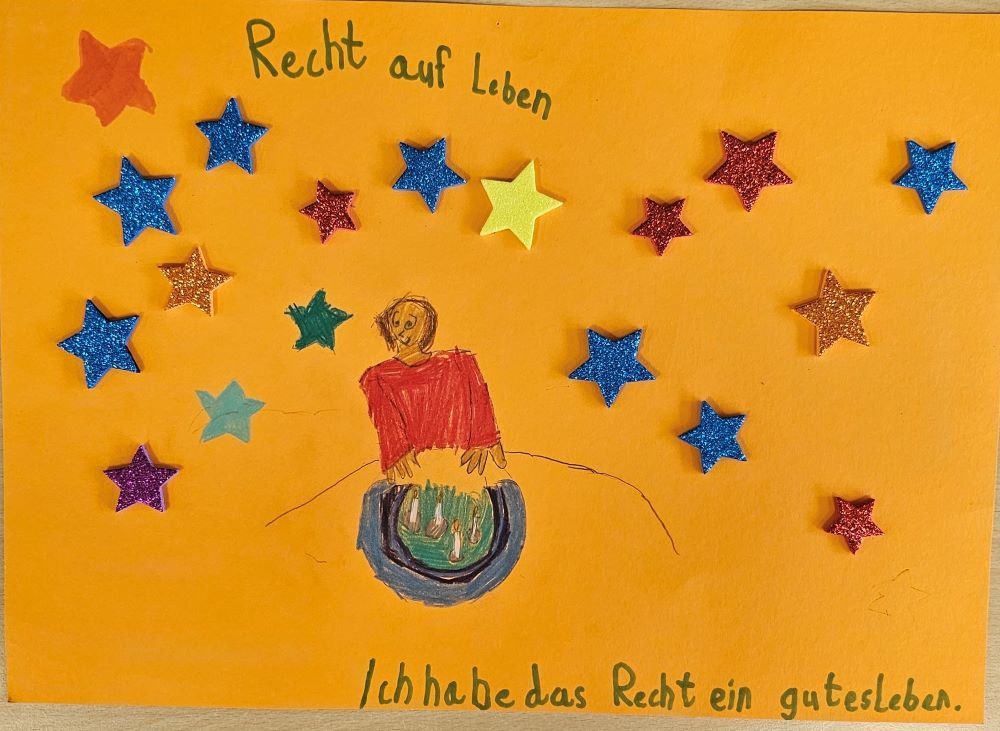 Recht auf Leben
Ich habe das Recht ein gutesLeben.